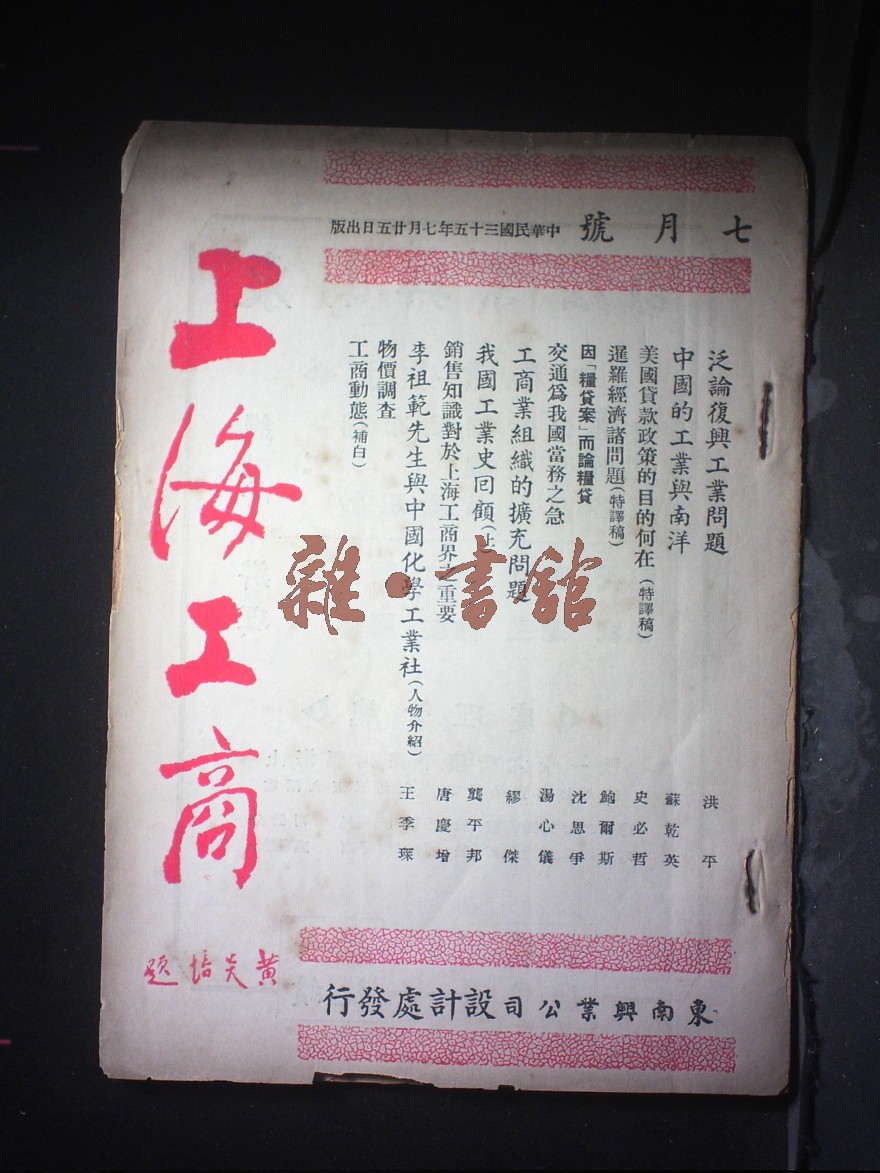 七月號 中華民國三十五年七月廿五日出版
泛論復興工業問題 洪平
中國的工業與南洋 蘇乾英
美國貸款政策的目的何在(特譯稿) 史必哲
暹羅經濟諸問題(特譯稿) 鮑爾斯
因「糧貸案」而論糧貸 沈思爭
交通爲我國當務之急 湯心儀
工商業組織的擴充問題 繆傑
我國工業史回顧(上) 龔平邦
銷售知識對於上海工商界之重要 唐慶增
李祖範先生與中國化學工業社(人物介紹) 王季琛
物價調查
工商動態(補白)
上海工商
黃炎培題
東南興業公司設計處發行
雜·書舘